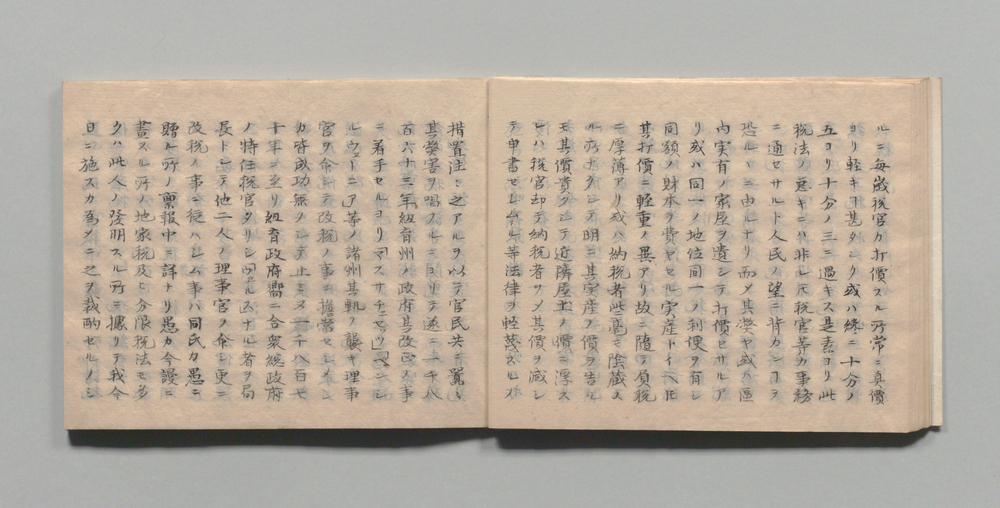 ルニ毎歳税官カ打價スル所常ニ真價
ヨリ軽キ甚タシク或ハ纔ニ十分ノ
五ヨリ十分ノ三ニ過キス是素ヨリ此
税法ノ悪キニハ非レ𪜈税官等カ事務
ニ通セサルト人民ノ望ニ背カンヿヲ
恐ルヽニ由ルナリ而メ其弊ヤ或ハ區
内実有ノ家屋ヲ遺シテ打價セサルア
リ或ハ同一ノ地位同一ノ利便ヲ有シ
同額ノ財本ヲ費ヤセル実産トイヘ𪜈
其打價ニ軽重ノ異アリ故ニ随テ負税
ニ厚薄アリ或ハ納税者些毫モ陰蔵ス
ル所ナクシテ明ニ其家産ノ價ヲ告ル
モ其價貴クシテ近隣屋主ノ價ニ浮ス
レハ税官却テ納税者ヲメ其價ヲ減シ
テ申書セシムル等法律ヲ軽蔑スルノ
措置注々之アルヲ以テ官民共ニ囂々
其弊害ヲ唱フルニヨリテ遂ニ一千八
百六十三年紐育州ノ政府其改正ノ事
ニ着手セルヨリマスサチユセツ「ペンシ
ルウェーニア」等ノ諸州其軌ヲ襲キ理事
官ヲ命シテ改税ノ事ニ擔當セシメシ
カ皆成功無クシテ止ミヌ一千八百七
十年ニ至リ紐育政府嚮ニ合衆総政府
ノ特任税官タリシ
ナル者ヲ局
長トシテ他二人ノ理事官ヲ命シ更ニ
改税ノ事ニ従ハシム事ハ同氏カ愚ニ
贈ル所ノ禀報中ニ詳ナリ愚カ今謾ニ
畫スル所ノ地家税及ヒ分限税法モ多
クハ此人ノ發明スル所ニ據リテ我今
日ニ施スカ為メニ之ヲ裁酌セルノミ